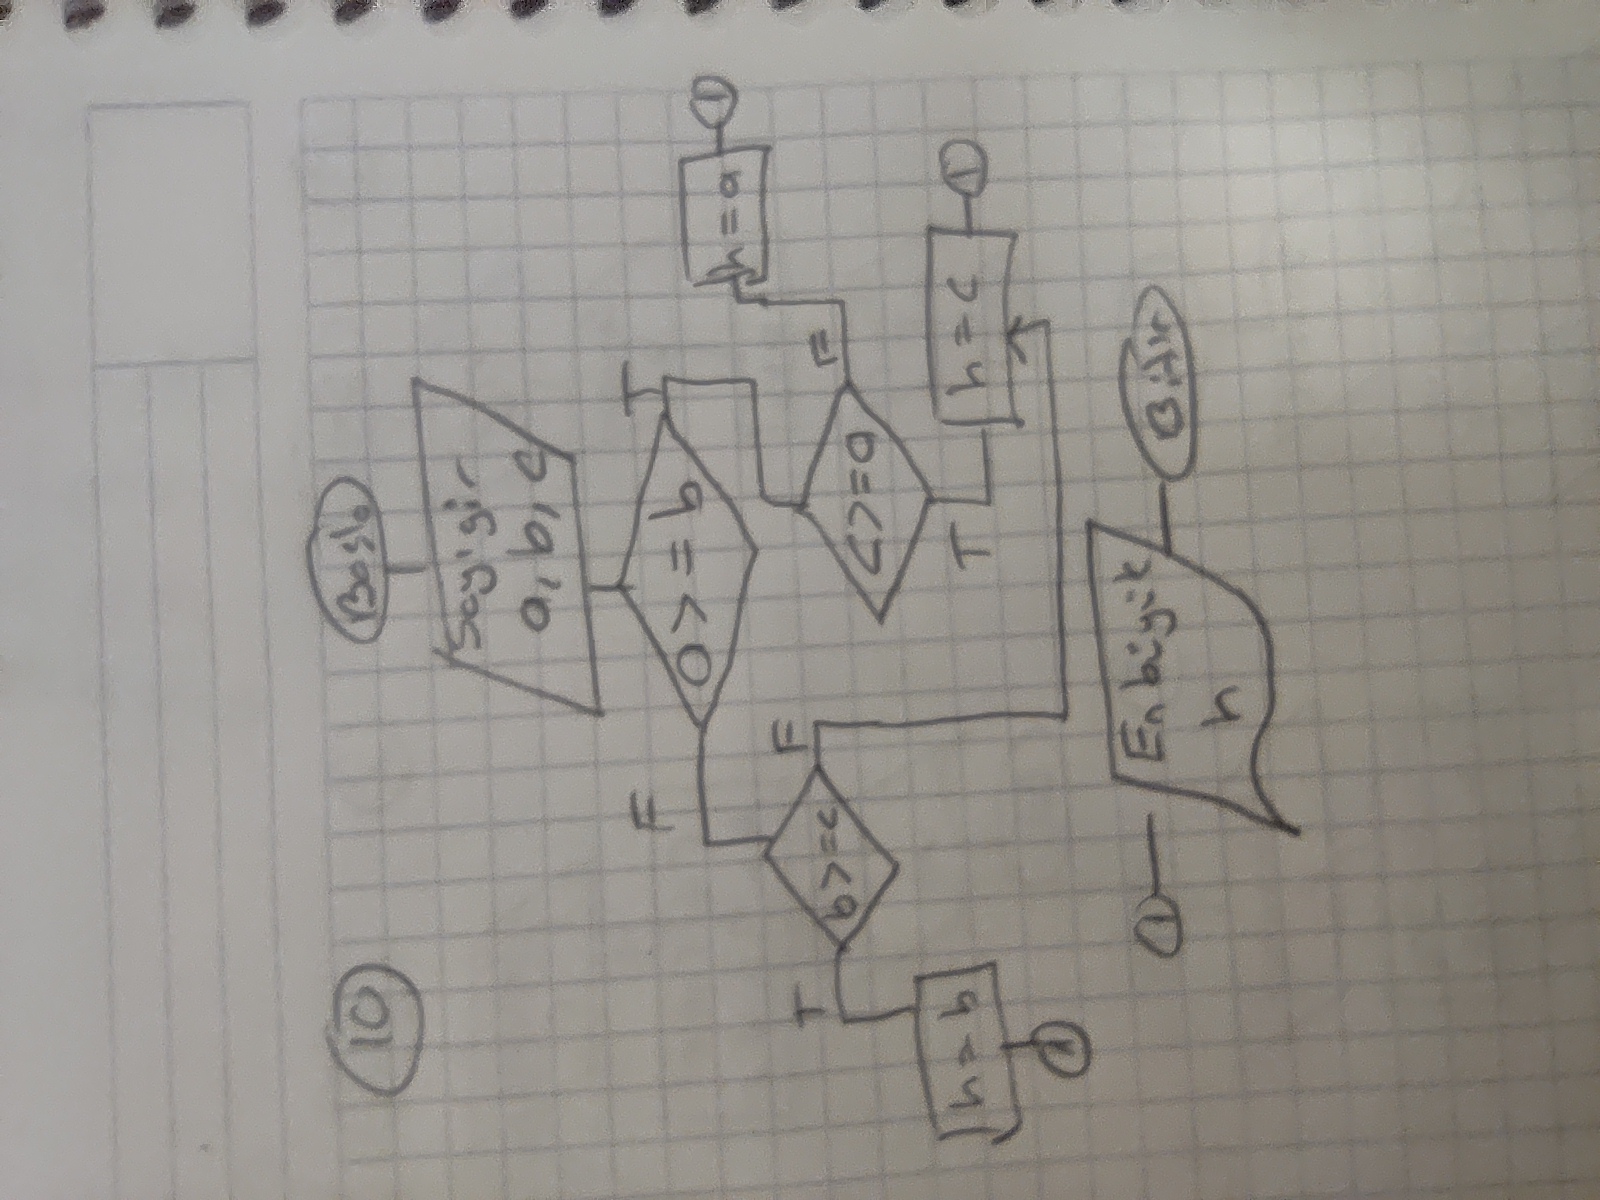 10
Başla
Sayı gir
a, b, c
F
T
a >= b
h = a
1
T
b >= c
F
c >= a
F
h = b
1
T
h = c
1
1
En büyük
h
Bitir